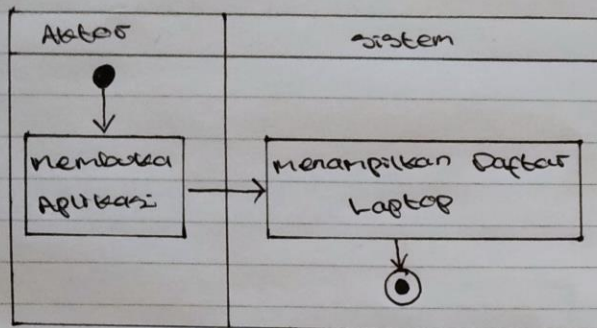 Aktor
sistem
membuka
Aplikasi
menampilkan Daftar
Laptop